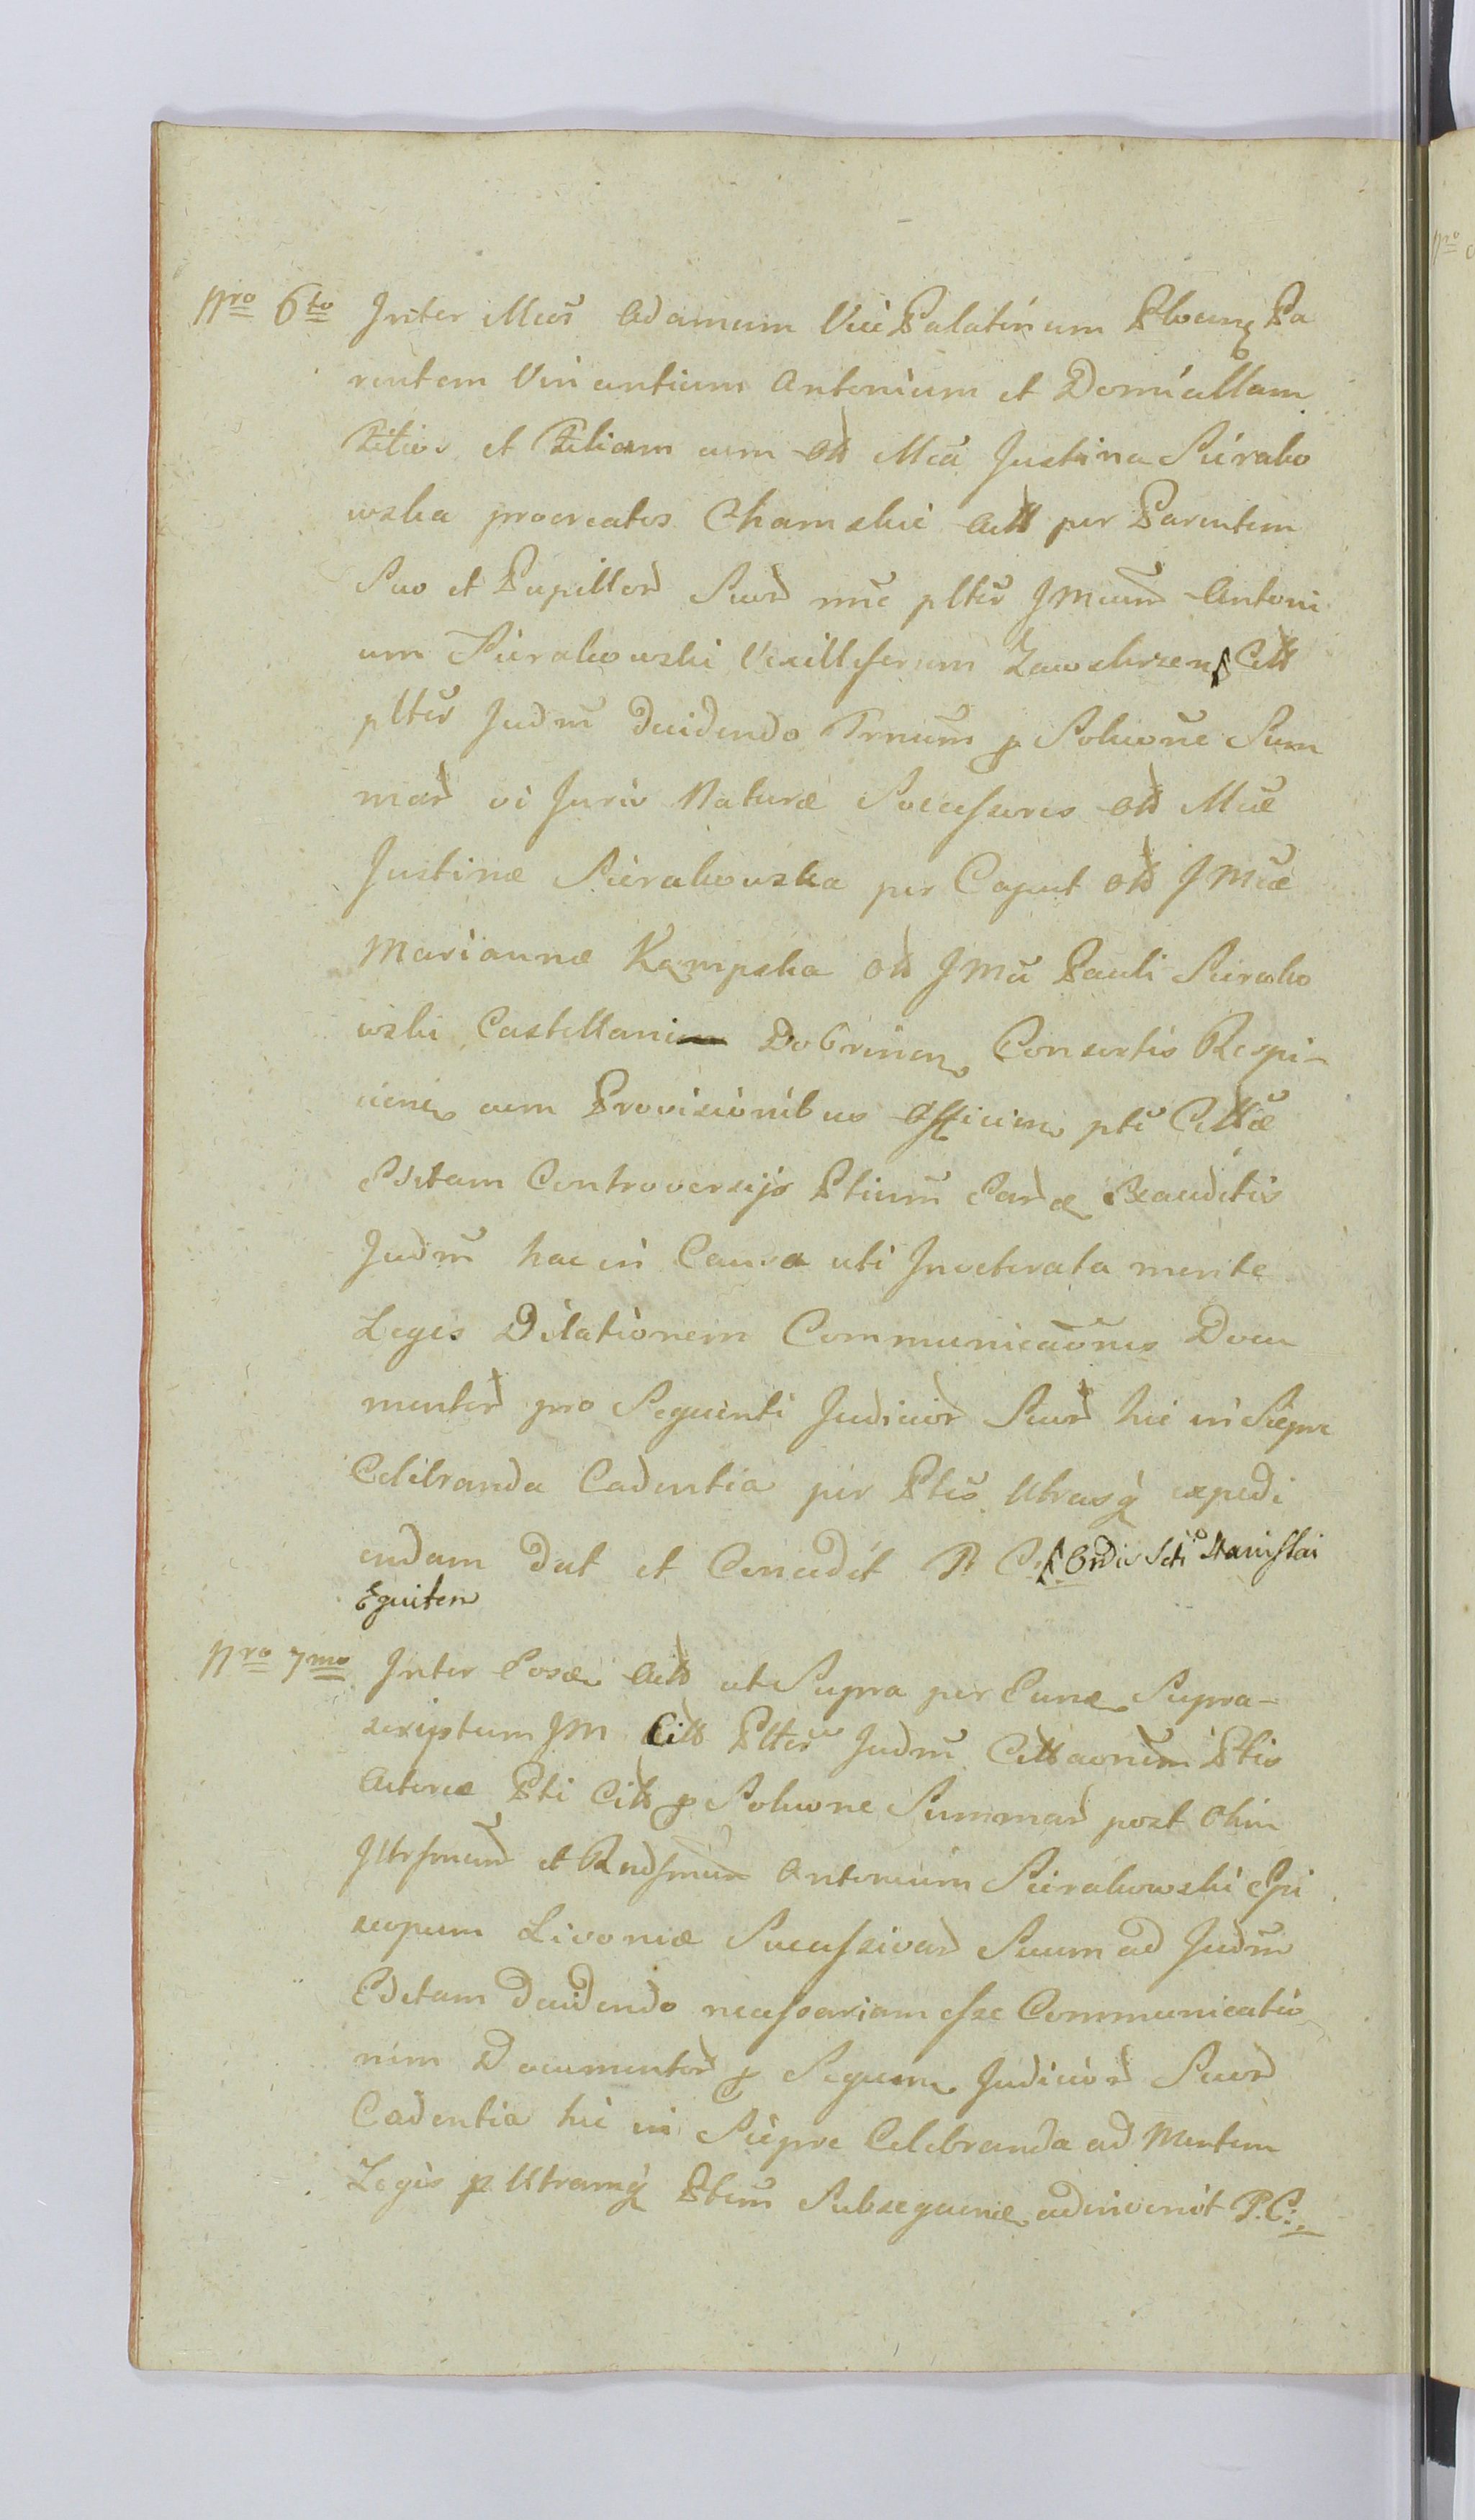 Nro 6to Inter Mcos Adamum Vice Palatinum Plocens Pa
rentem Vincentium Antonium et Domicellam
Filios et Filiam cum olt Mca Justina Sierako
wska procreatos Chamskie Actt per Parentem
Suo et Pupillord Suord nne pltes JMcum Antoni
um Sierakowski Vexilliferum Zawskrzens Citt
plter Judm decidendo Trnum p Soluone Sum
mard vi Juris Naturæ Successores olt Mcæ
Justinæ Sierakowska per Caput olt JMcæ
Mariannæ Kempska olt JMci Pauli Sierako
wski Castellani Dobrinen Consortis Respi-
ciens cum Provisionibus Afficien pti Cittæ
Editam Controversijs Ptium Pard Exauditis
Judm hac in Causa uti Inveterata mente
Legis Dilationem Communicaonis Docu
mentord pro Sequenti Judiciord Suord hic in Siepre
Celebranda Cadentia per Ptes Utrasq expedi
endam Dat et Concedit P C Ordis Scti Stanislai
Equitem
Nro 7mo Inter Eosdem Actt ut Supra per Eunde Supra-
scriptum JM Citt Plter Judm Cittaonum Ptis
Actoreæ Pti Citt p Soluone Summard post Olim
Illrsmum et Rndsmum Antonium Sierakowski Epi
scopum Livoniæ Successivard Suum ad Judm
Editam Decidendo necessariam esse Communicatio
nem Documentord p Sequen Judiciord Suord
Cadentia hic in Siepre Celebranda ad Mentem
Legis p Utramq Ptem Subsequend adinvenit P.C.